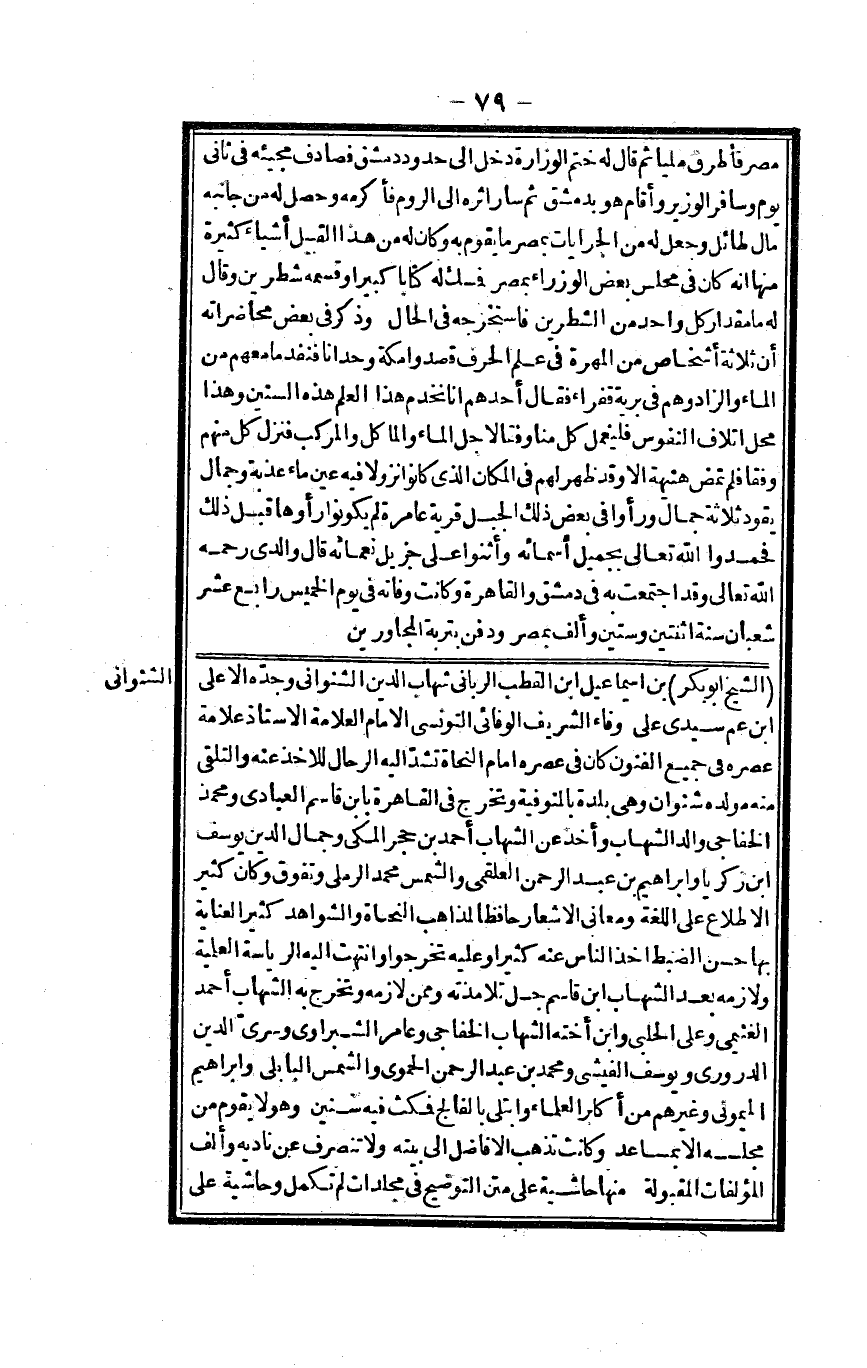 - ٧٩ -
مصر فأطرق مليا ثم قال له ختم الوزارة دخل الى حدود دمشق فصادف مجيئه فى ثانى
يوم وسافر الوزير وأقام هو بدمشق ثم سار اثره الى الروم فأكرمه وحصل له من جانبه
مال طائل وجعل له من الجرايات بمصر ما يقوم به وكان له من هذا القبيل أشياء كثيرة
منها انه كان فى مجلس بعض الوزراء بمصر فسك له كتابا كبيرا وقسمه شطرين وقال
له ما مقدار كل واحد من الشطرين فاستخرجه فى الحال وذكر فى بعض محاضراته
أن ثلاثة أشخاص من المهرة فى علم الحرف قصدوا مكة وحدانا فنفد ما معهم من
الماء والزاد وهم فى برية قفراء فقال أحدهم انا نخدم هذا العلم هذه السنين وهذا
محل اتلاف النفوس فليعمل كل منا وفقا لاجل الماء والمأكل والمركب فنزل كل منهم
وفقا فلم تمض هنيهة الا وقد ظهر لهم فى المكان الذى كانوا نزولا فيه عين ماء عذبة وجمال
يقود ثلاثة جمال ورأوا فى بعض ذلك الجبل قرية عامرة لم يكونوا رأوها قبل ذلك
فحمدوا الله تعالى بجميل أسمائه وأثنوا على جزيل نعمائه قال والدى رحمه
الله تعالى وقد اجتمعت به فى دمشق والقاهرة وكانت وفاته فى يوم الخميس رابع عشر
شعبان سنة اثنتين وستين وألف بمصر ودفن بتربة المجاورين
(الشيخ ابو بكر) بن اسماعيل ابن القطب الربانى شهاب الدين الشنوانى وجده الاعلى
الشنوانى
ابن عم سيدى على وفاء الشريف الوفائى التونسى الامام العلامة الاستاذ علامة
عصره فى جميع الفنون كان فى عصره امام النحاة تشد اليه الرحال للاخذ عنه والتلقى
منه مولده شنوان وهى بلدة بالمنوفية وتخرج فى القاهرة بابن قاسم العبادى ومحمد
الخفاجى والد الشهاب وأخذ عن الشهاب أحمد بن حجر المكى وجمال الدين يوسف
ابن زكريا وابراهيم بن عبد الرحمن العلقمى والشمس محمد الرملى وتفوق وكان كثير
الاطلاع على اللغة ومعانى الاشعار حافظا لمذاهب النحاة والشواهد كثير العناية
بها حسن الضبط اخذ الناس عنه كثيرا وعليه تخرجوا وانتهت اليه الرياسة العلية
ولازمه بعد الشهاب ابن قاسم جل تلامذته وممن لازمه وتخرج به الشهاب أحمد
الغنيمى وعلى الحلبى وابن أخته الشهاب الخفاجى وعامر الشبراوى وسرىّ الدين
الدرورى ويوسف الفيشى ومحمد بن عبد الرحمن الحموى والشمس البابلى وابراهيم
الميمونى وغيرهم من أكابر العلماء وابتلى بالفالج فمكث فيه سنين وهو لا يقوم من
مجلسه الا بمساعد وكانت تذهب الافاضل الى بيته ولا تنصرف عن ناديه وألف
المؤلفات المقبولة منها حاشية على متن التوضيح فى مجلدات لم تكمل وحاشية على